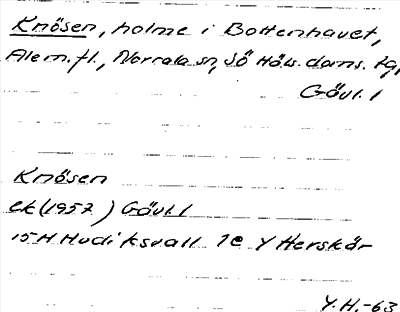 Knösen, holme i Bottenhavet,
Alem.fl., Norrala sn, Sö Häls. doms. tg,
Gävl. l
Knösen
ek (1957) Gävl. l
15H Hudiksvall 1e Ytterskär
Y.H.-63